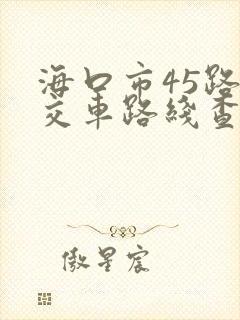 海口市45路
交车路线查
傲星宸